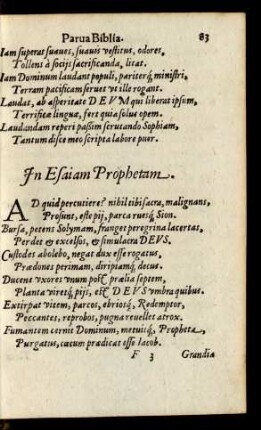 Parua Biblia. 83
Iam superat suaues, suauis vestitus, odores,
Tollens à socijs sacrificanda, litat.
Iam Dominum laudant populi, pariterq́; ministri,
Terram pacificam seruet vt ille rogant.
Laudat, ab asperitate DEVM qui liberat ipsum,
Terrificæ linguæ, fert quia solus opem.
Laudandam reperi passim scrutando Sophiam,
Tantum disce meo scripta labore puer.
In Esaiam Prophetam.
AD quid percutiere? nihil tibi sacra, malignans,
Prosunt, este pij, parca ruesq́; Sion.
Bursa, petens Solymam, franges peregrina lacertas,
Perdet & excelsos, & simulacra DEVS.
Custodes abolebo, negat dux esse rogatus,
Prædones perimam, diripiamq́; decus.
Ducent vxores vnum post prælia septem,
Planta viretq́; pijs, est DEVS vmbra quibus.
Extirpat vitem, parcos, ebriosq́; Redemptor,
Peccantes, reprobos, pugna reuellet atrox.
Fumantem cernit Dominum, metuitq́; Propheta,
Purgatus, cæcum prædicat esse Iacob.
F 3 Grandia